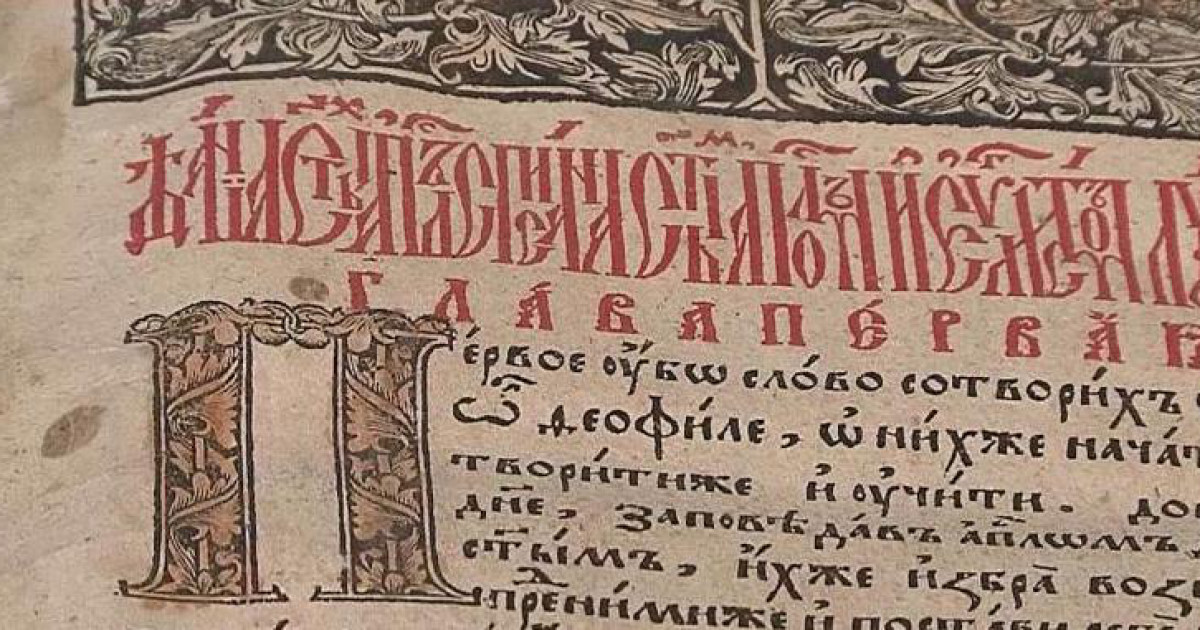 ДѢАНИА СТЫХЪ АПЛЪ СПИСАНА СТЫМЪ АПЛОМЪ И ЕУЛИСТОМЪ
ГЛА́ВА ПЕ́РВАѦ
Пе́рвое ᲂу҆́бѡ сло́во сотвори́хъ
ѽ ѳеофи́ле, ѡ҆ ни́хже нача́т
твори́тиже и҆ ᲂу҆чи́ти. до
дн҃е, заповѣда́въ а҆п҃лѡмъ
ст҃ы́мъ, и҆́хже и҆збра̀ воз
преⷣни́миже и҆